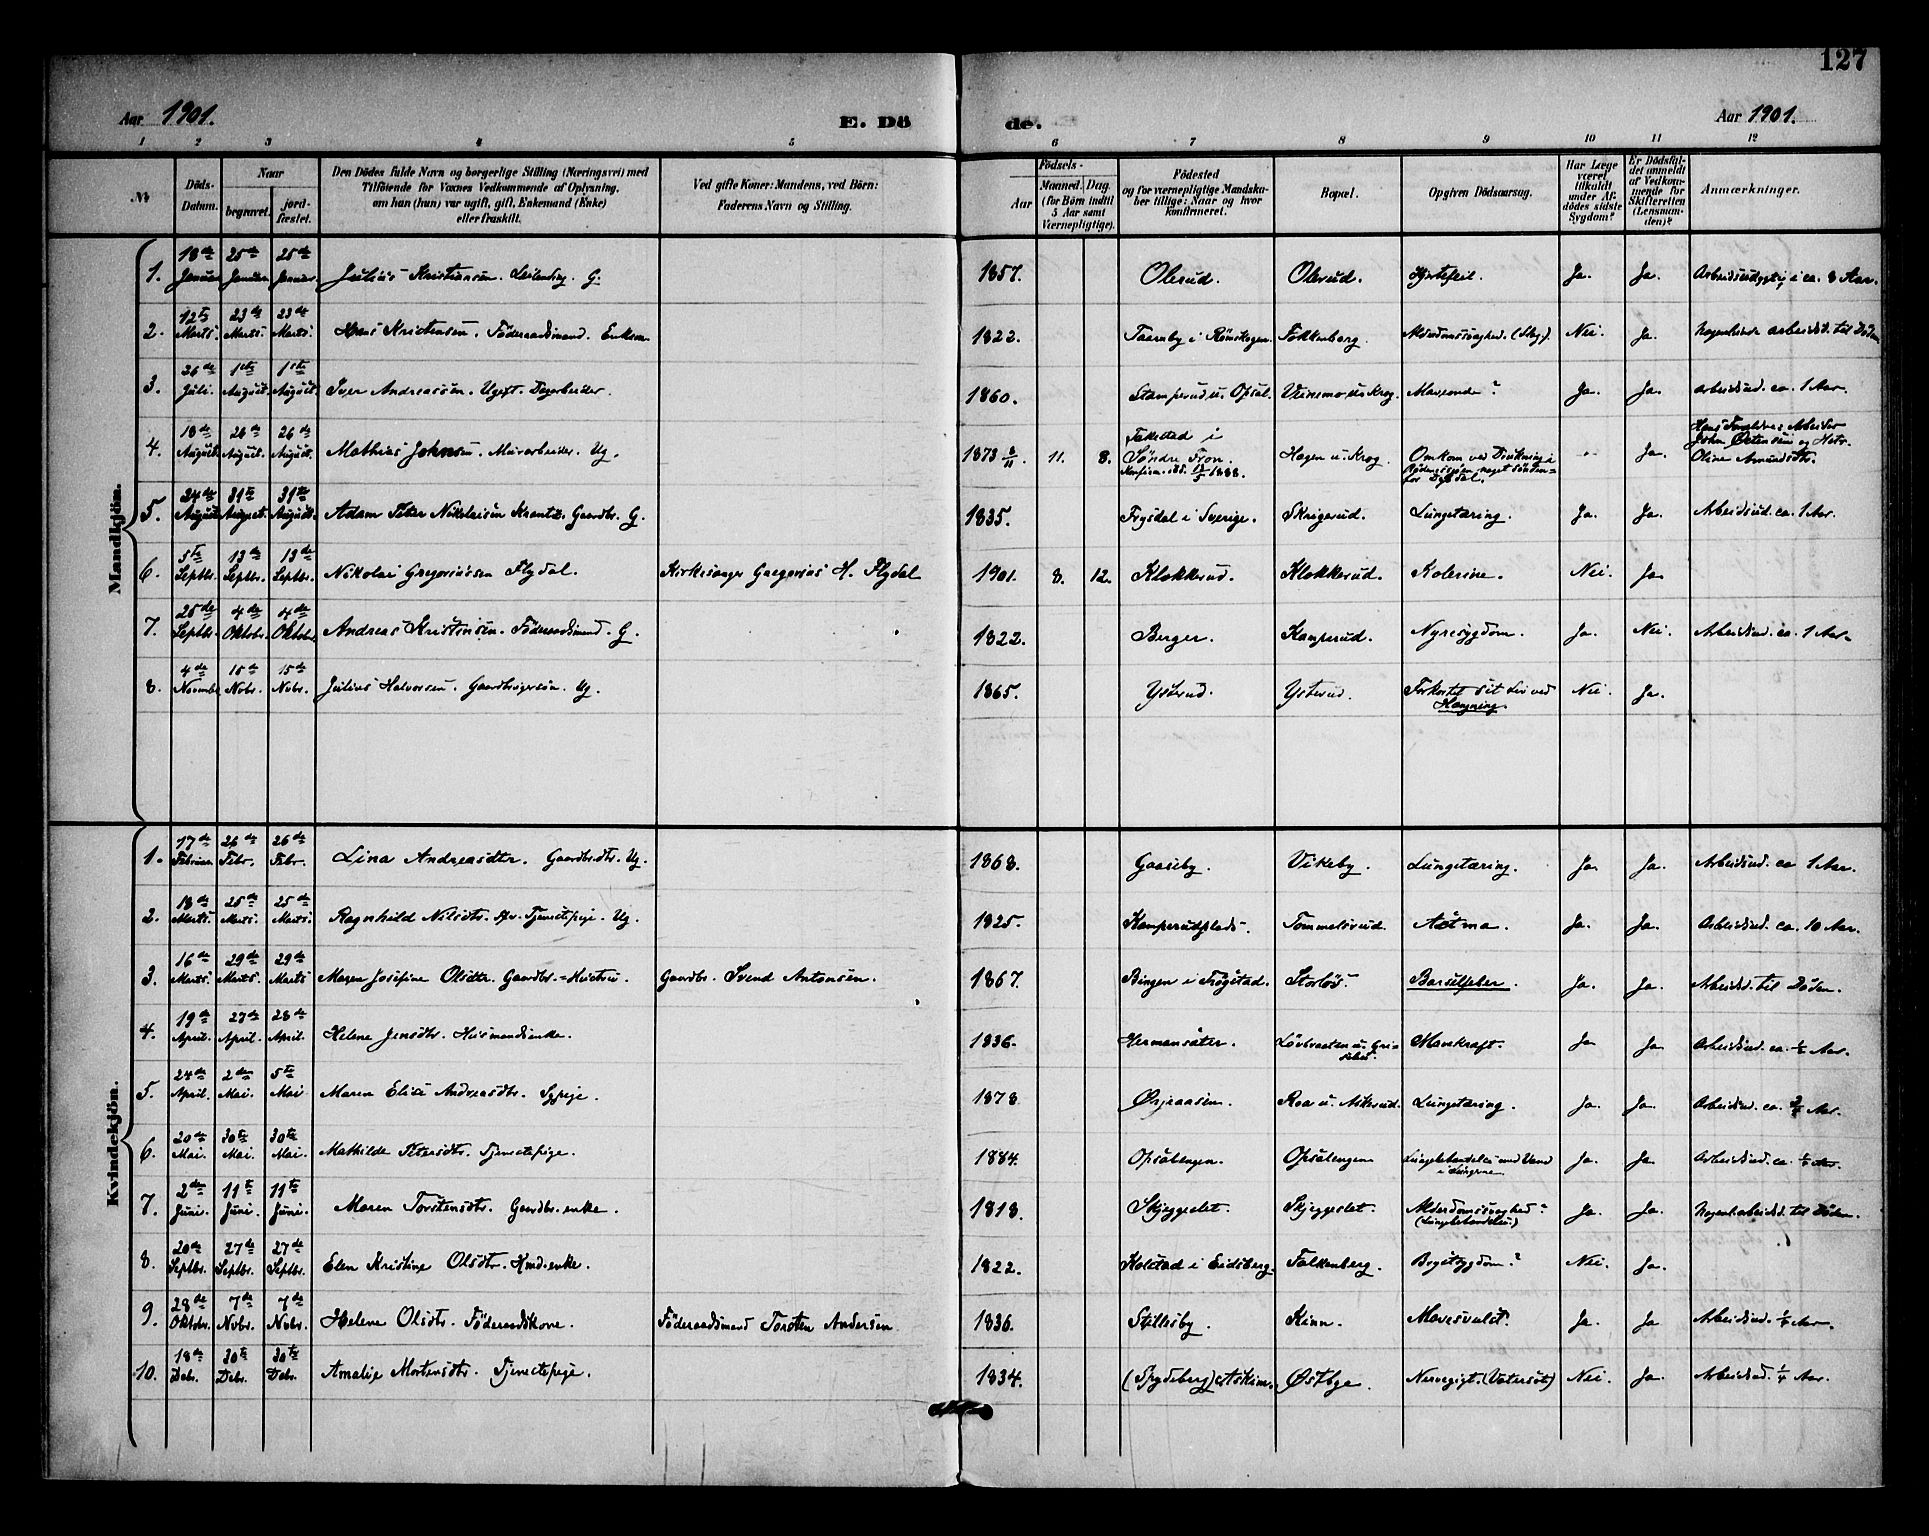 127
Aar 1901.
E. Dö
de.
Aar 1901.
1 2 3 4 5 6 7 8 9 10 11 12
No
Döds-Datum.
Naar
begravet.
jordfæstet.
Den Dödes fulde Navn og borgerlige Stilling (Næringsvei) med
Tilföiende for Voxnes Vedkommende af Oplysning,
om han (hun) var ugift, gift, Enkemand (Enke)
eller fraskilt.
Ved gifte Koner: Mandens, ved Börn:
Faderens Navn og Stilling.
Födsels-
Aar
Maaned. Dag.
(for Börn indtil
5 Aar samt
Værnepligtige).
Födested
og for værnepligtige Mandskaber tillige: Naar og hvor
konfirmeret.
Bopæl.
Opgiven Dödsaarsag.
Har Læge
været
tilkaldt
under Afdödes sidste
Sygdom?
Er Dödsfaldet anmeldt
af Vedkommende for
Skifteretten
(Lensmanden)?
Anmærkninger.
Mandkjön.
1. 18de Januar 25de Januar 25de Januar Julius Kristiansen. Leilending. G. 1857. Olerud. Olerud. Hjertefeil. Ja. Ja. Arbeidsudygtig i ca. 8 Aar.
2. 12te Marts. 23de Marts. 23de Marts. Hans Kristensen, Föderaadsmand. Enkem. 1822. Taarnby i Römskogen. Falkenberg. Alderdomssvaghed. Nei. Ja. Nogenlunde arbeidsd. til Döden
3. 26de Juli. 1ste August. 1ste August. Iver Andreassen. Ugift. Dagarbeider. 1860. Stamperud u. Opsal. Veinemo u. Krog. Maveonde? Ja. Ja. Arbeidsud. ca. 1 Aar.
4. 18de August. 26de August. 26de August. Mathias Johnsen. Murarbeider. Ug. 1873 8/11 11. 8. i Söndre Fron. 1888. Hagen u. Krog. Omkom ved Drukning i Ja. Hans Forældre: Arbeider
John Östensen og Hstr.
Oline Amundsdtr.
5. 24de August. 31te August. 31te August. Adam Peter Nikolaisen Krantz. Gaardbr. G. 1835. Frysdal i Sverige. Skeigerud. Lungetæring. Ja. Ja. Arbeidsud. ca. 1 Aar.
6. 5te Septbr. 13de Septbr. 13de Septbr. Nikolai Gregoriussen Flydal. Kirkesanger Gregorius H. Flydal 1901. 8. 12. Klokkerud. Klokkerud. Kolerine. Nei. Ja.
7. 25de Septbr. 4de Oktobr. 4de Oktobr. Andreas Kristensen. Föderaadsmand. G. 1822. Berger. Kamperud. Nyresygdom. Ja. Nei. Arbeidsud. ca. 1 Aar.
8. 4de Novembr 15de Nobr. 15de Nobr. Julius Halvorsen. Gaardbrugersön. Ug. 1865. Ysterud. Ysterud. Forkortet sit Liv ved
Hængning. Nei. Ja.
Kvindekjön.
1. 17de Februar. 26de Febr. 26de Febr. Lina Andreasdtr. Gaardbr.dtr. Ug. 1868. Gaaseby. Vikeby. Lungetæring. Ja. Ja. Arbeidsud. ca 1 Aar.
2. 18de Marts. 25de Marts. 25de Marts. Ragnhild Nilsdtr. Tjenestepige. Ug. 1825. Kamperudplads. Tommelsrud. Astma. Ja. Ja. Arbeidsud. ca. 10 Aar.
3. 16de Marts. 29de Marts. 29de Marts Maren Josefine Olsdtr. Gaardbr.-Hustru. Gaardbr. Svend Antonsen. 1867. Bingen i Trögstad. Storlös. Barselfeber. Ja. Ja. Arbeidsd. til Döden.
4. 19de April. 27de April. 28de April. Helene Jensdtr. Husmandsenke. 1836. Hermansäter. Lövbraaten u. Mavekræft. Ja Ja. Arbeidsud. ca. ½ Aar.
5. 24de April. 2den Mai. 5te Mai Maren Elise Andreasdtr. Sypige. 1878 Ørjeaasen. Roa u. Askerud. Lungetæring. Ja. Ja. Arbeidsud. ca. ¾ Aar.
6. 20de Mai. 30te Mai. 30te Mai. Mathilde Petersdtr. Tjenestepige. 1884. Opsalengen. Opsalengen Lungebetændelse med Vand
i Lungerne Ja. Ja. Arbeidsud. ca
7. 2den Juni. 11te Juni. 11te Juni. Maren Torstensdtr. Gaardbr.enke. 1818. Skjeggeslet. Skjeggeslet. Alderdomssvaghed?
(Lungebetændelse) Ja. Ja. til Döden.
8. 20de Septbr. 27de Septbr. 27de Septbr. Elen Kristine Olsdtr. Hmd.enke. 1822. Kolstad i Eidsberg. Falkenberg. Brystsygdom? Nei. Ja.
9. 28de Oktobr. 7de Nobr. 7de Nobr. Helene Olsdtr. Föderaadskone. Föderaadsmand Torsten Andersen 1836. Stillesby. Kinn. Mavesvulst. Ja. Ja Arbeidsud. Aar.
10. 18de Debr. 30te Debr. 30te Debr. Amalie Mortensdtr. Tjenestepige. 1834. (Spydeberg) Askim. Østbye. Nervegigt. (Vatersot) Nei. Ja. Arbeidsud. ¼ Aar.